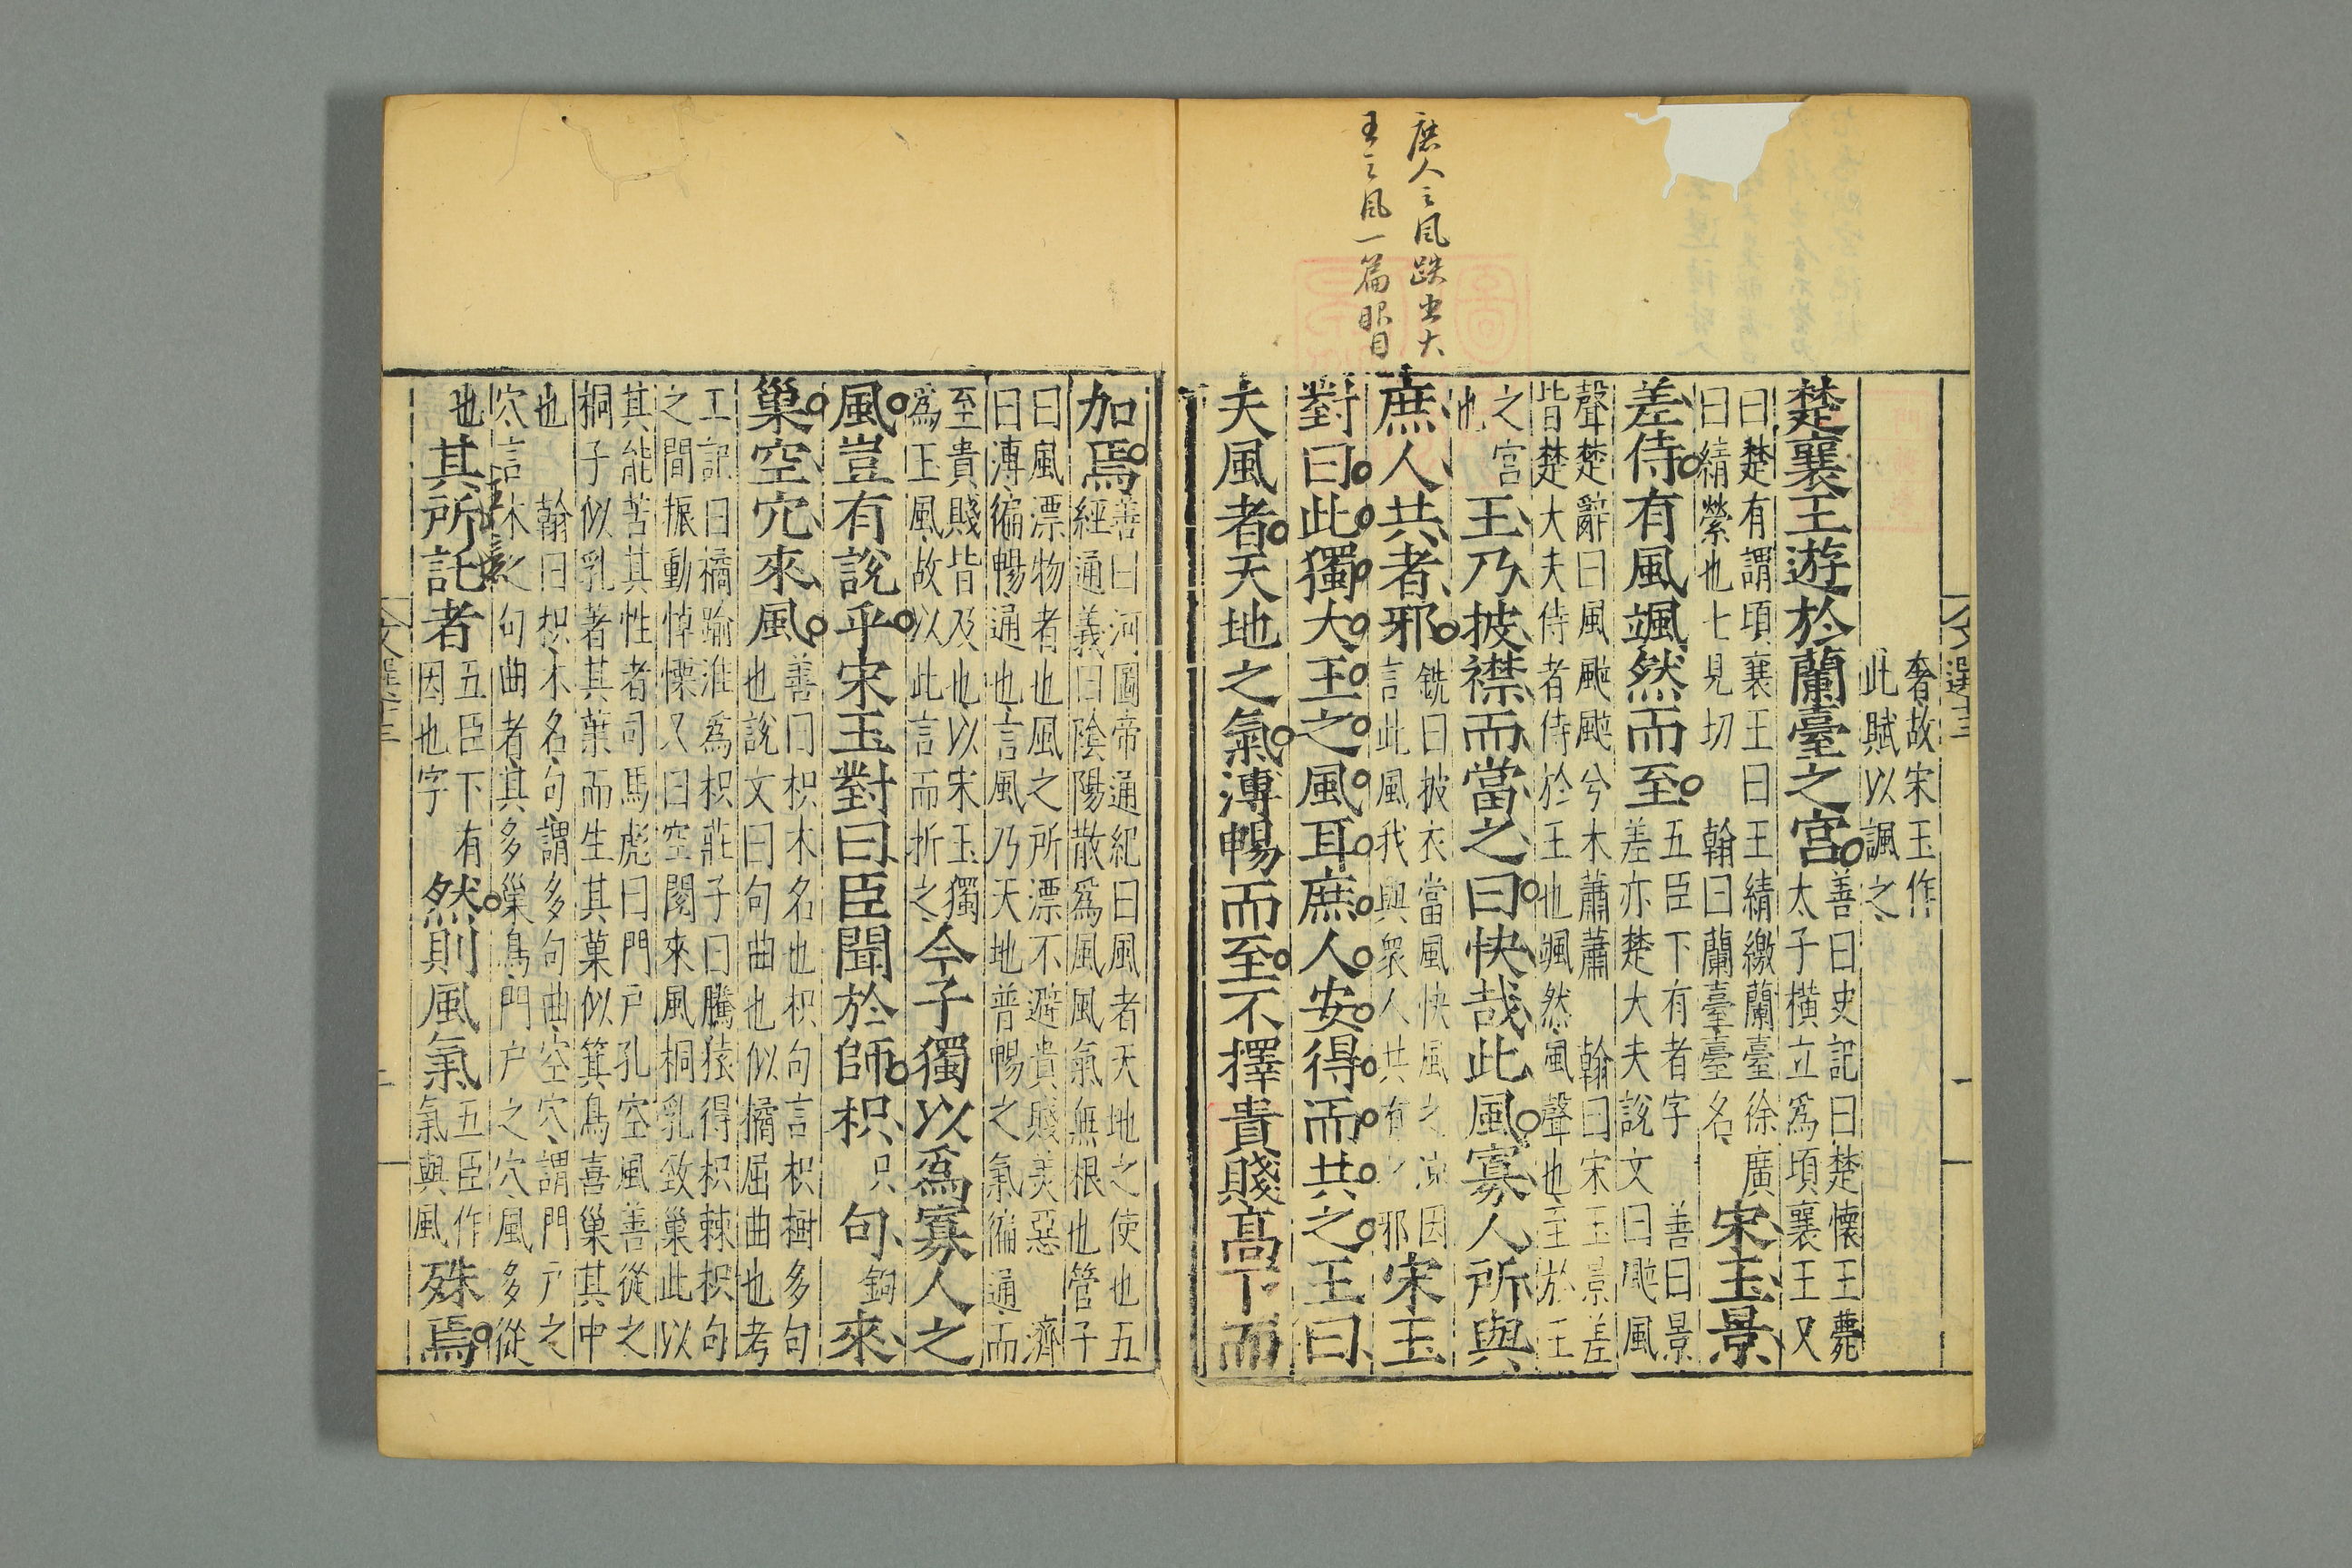 庶人之風跌出大
王之風一篇眼目
文選十三
一
奢故宋玉作
此賦以諷之
楚襄王遊於蘭臺之宮
善曰史記曰楚懷王薨
太子橫立為頃襄王又
曰楚有謂頃襄王曰王績繳蘭臺徐廣
曰績縈也七見切 翰曰蘭臺臺名
宋玉景
差侍有風颯然而至
五臣下有者字 善曰景
差亦楚大夫說文曰颯風
聲楚辭曰風颯颯兮木蕭蕭 翰曰宋玉景差
皆楚大夫侍者侍於王也颯然風聲也至於王
之宮
也
王乃披襟而當之曰快哉此風寡人所與
庶人共者邪
銑曰披衣當風快風之涼因
言此風我與衆人共有 邪
宋玉
對曰此獨大王之風耳庶人安得而共之王曰
夫風者天地之氣溥暢而至不擇貴賤高下而
加焉
善曰河圖帝通紀曰風者天地之使也五
經通義曰陰陽散爲風風氣無根也管子
曰風漂物者也風之所漂不避貴賤美惡 濟
曰溥徧暢通也言風乃天地普暢之氣徧通而
至貴賤皆及也以宋玉獨
爲王風故以此言而折之
今子獨以爲寡人之
風豈有說乎宋玉對曰臣聞於師枳只句鉤來
巢空穴來風
善曰枳木名也枳句言枳樹多句
也說文曰句曲也似橘屈曲也考
工記曰橘踰淮爲枳莊子曰騰猿得枳棘枳句
之間振動悼慄又曰空閱來風桐乳致巢此以
其能苦其性者司馬彪曰門戶孔空風善從之
桐子似乳著其葉而生其菓似箕鳥喜巢其中
也 翰曰枳木名句謂多句曲空穴謂門戶之
穴言木之句曲者其多巢鳥門戶之穴風多從
也
其所託者
五臣下有
因也字
然則風氣
五臣作
氣與風
殊焉